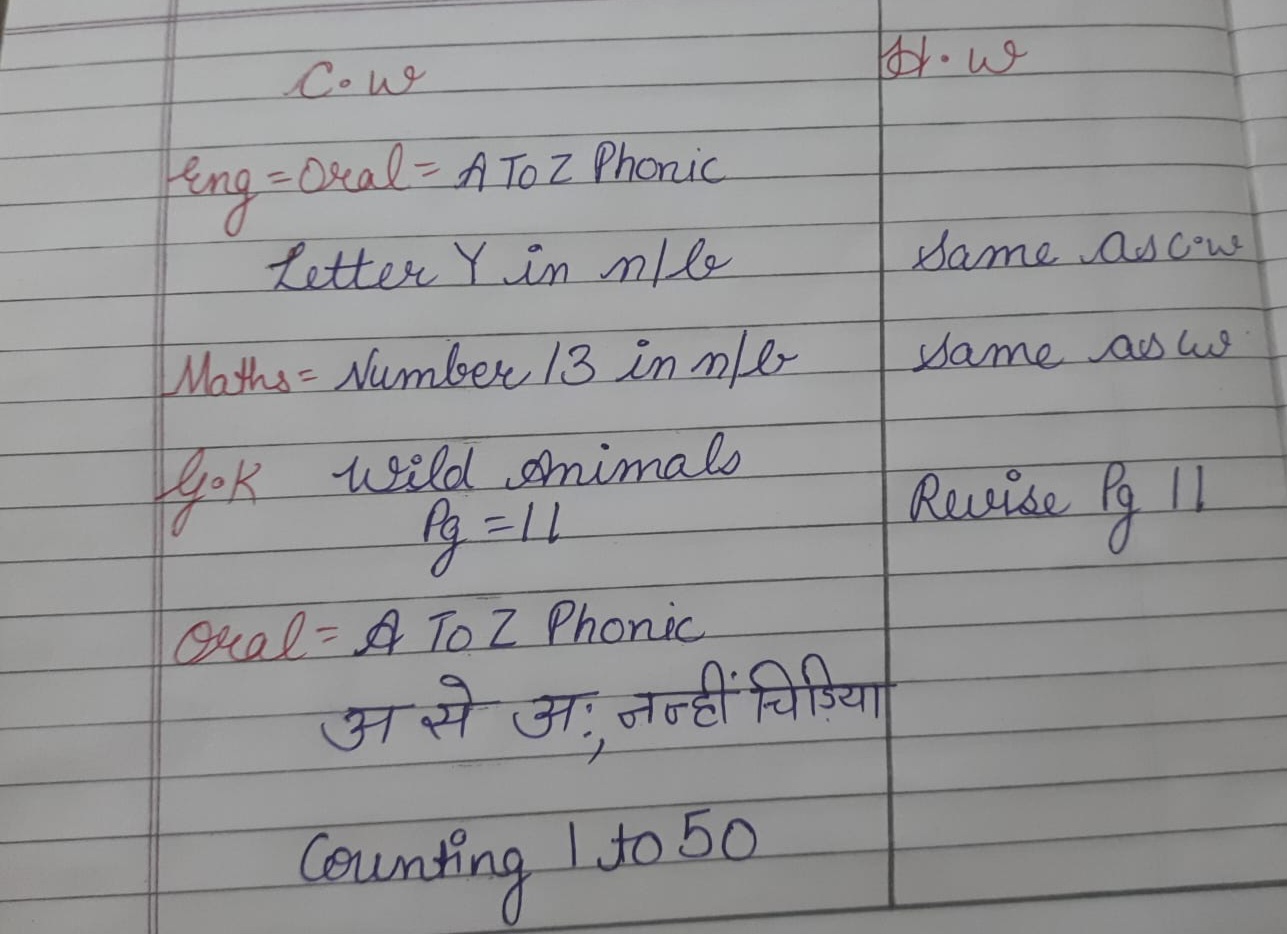 C.W H.W
Eng = Oral = A To Z Phonic
Letter Y in n/b Same as c.w
Maths = Number 13 in n/b Same as cw
G.K Wild Animals
Pg = 11 Revise Pg 11
Oral = A To Z Phonic
अ से अः, नन्हीं चिड़िया
Counting 1 to 50